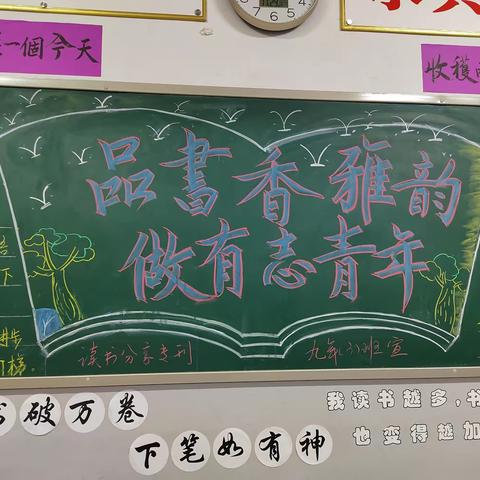 一個今天
收穫
品書香雅韵
做有志青年
下
进步
梯。
读书分享专刊
九年(3)班宣
破万卷
下笔如有神
我读书越多,书
也变得越加